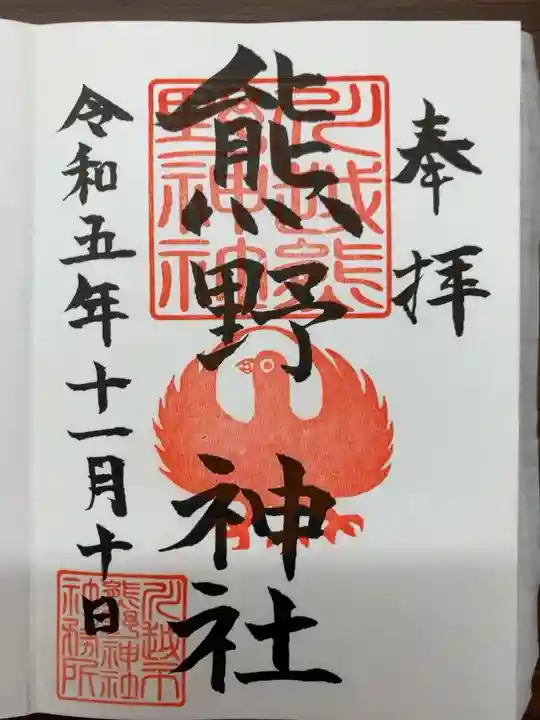 奉拝
熊野神社
令和五年十一月十日
川越熊
野神社
川越市
熊野神社
神務所